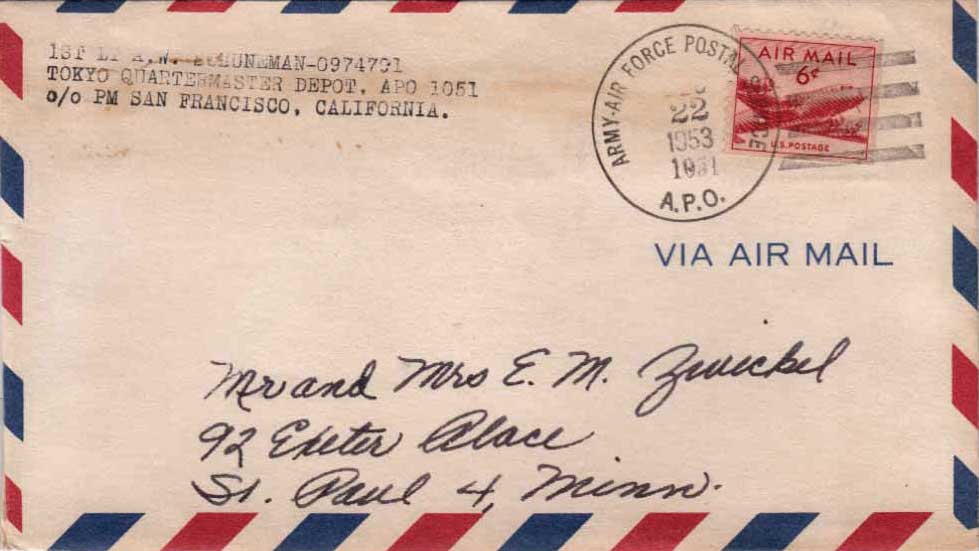 1ST LT A.W. SCHUNEMAN-0974791
TOKYO QUARTERMASTER DEPOT, APO 1051
c/o PM SAN FRANCISCO, CALIFORNIA.
ARMY-AIR FORCE POSTAL SERVICE
22
1953
A.P.O.
AIR MAIL
6¢
U.S. POSTAGE
VIA AIR MAIL
Mr and Mrs E. M. Zwickel
92 Exeter Place
St. Paul 4, Minn.